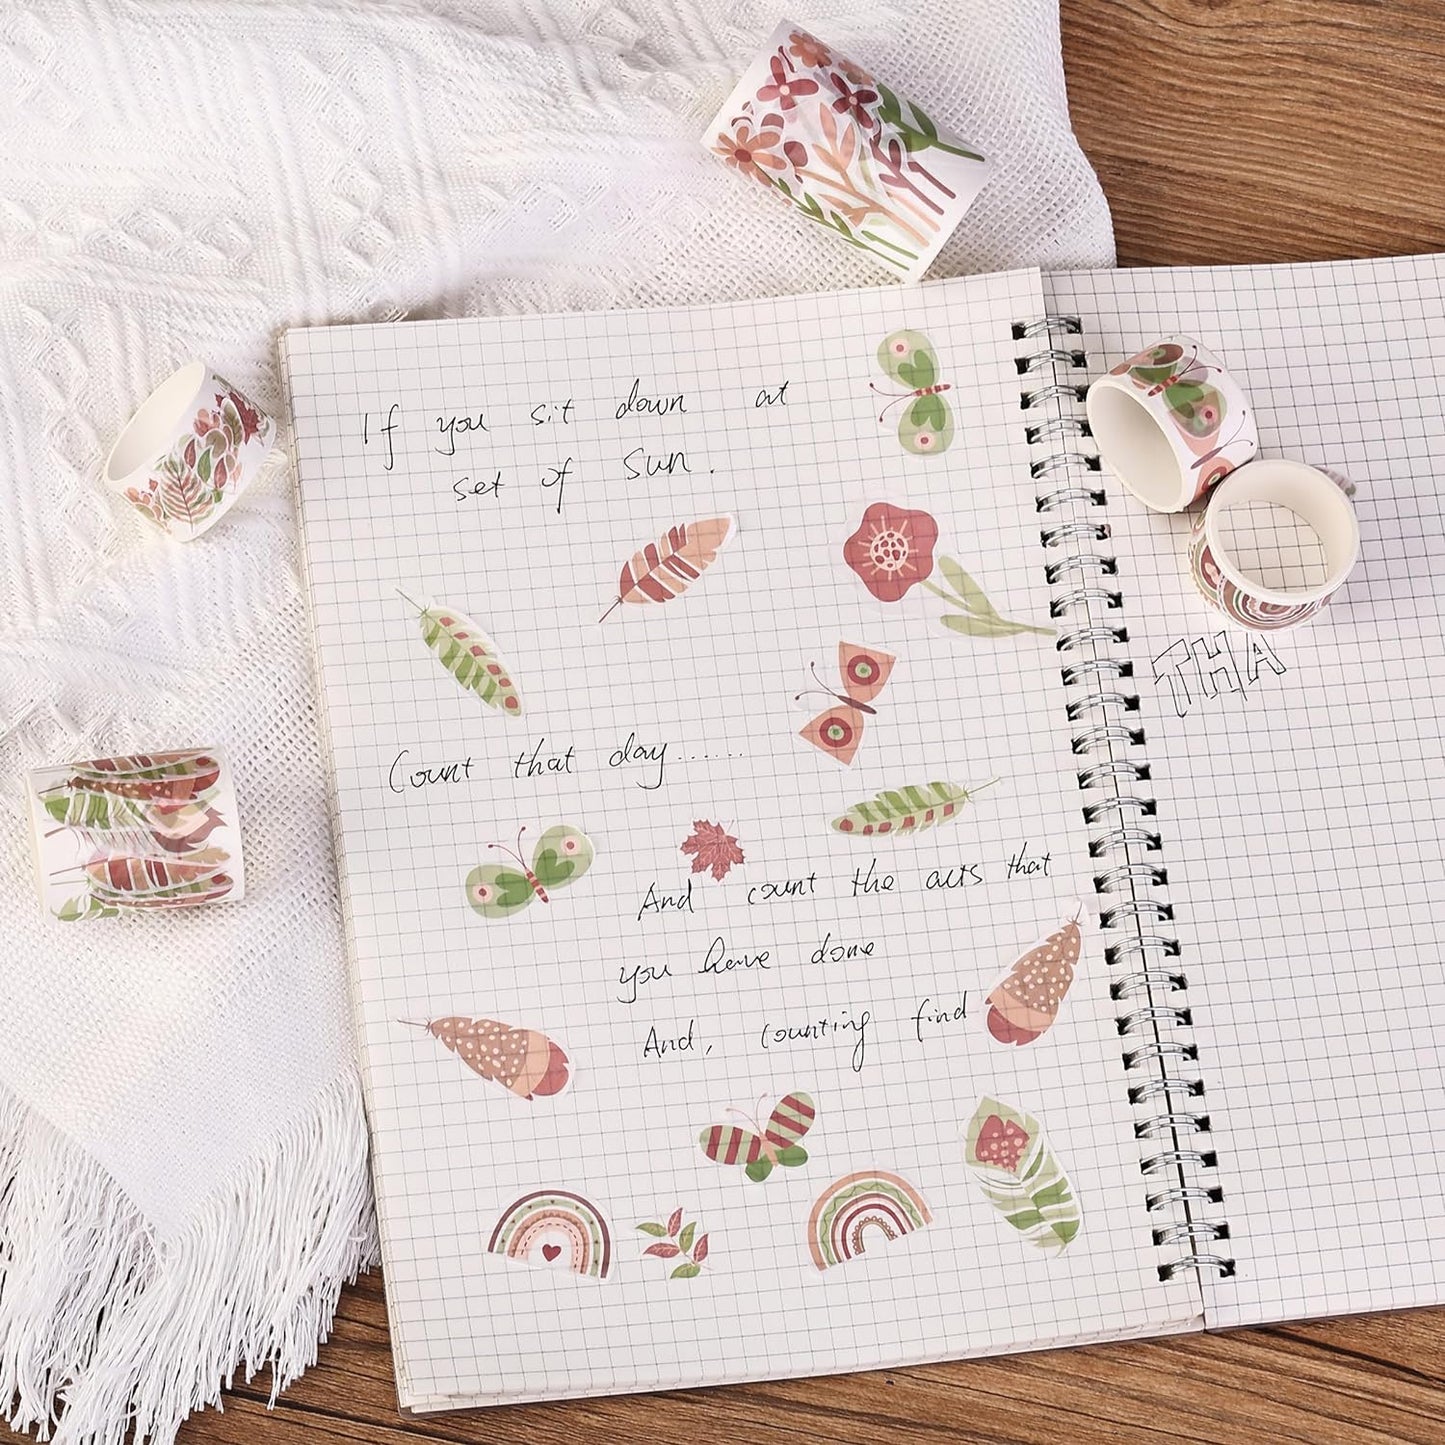 If you sit down at
set of sun.
Count that day......
And count the acts that
you have done
And, counting find
THA